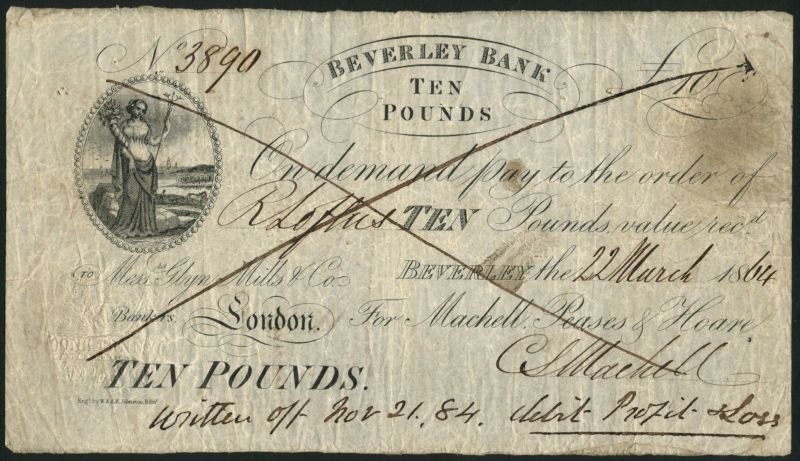 No 3890
BEVERLEY BANK
£10
TEN
POUNDS
On demand pay to the order of
R Loftus TEN Pounds, value rec.d
TO Mess.rs Glyn Mills & Co. BEVERLEY the 22 March 1864
Bankers, London. For Machell, Peases & Hoare
TEN POUNDS.
Engd. by W. & A.K. Johnston, Edinr.
Written off Nov 21. 84. debit Profit & Loss